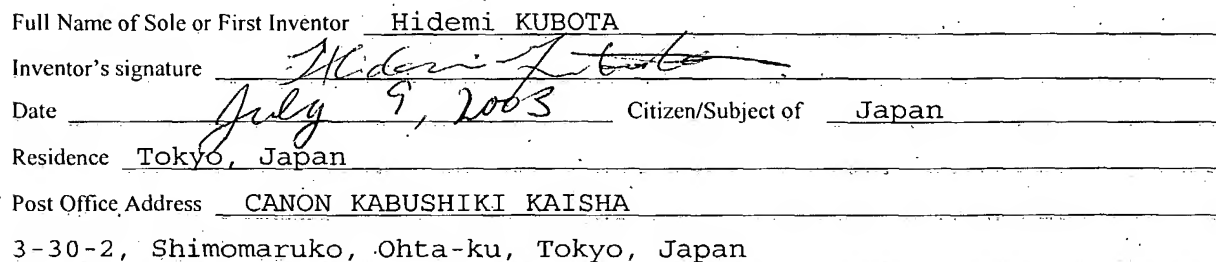 Full Name of Sole or First Inventor Hidemi KUBOTA
Inventor's signature Hidemi Kubota
Date July 9, 2003 Citizen/Subject of Japan
Residence Tokyo, Japan
Post Office Address CANON KABUSHIKI KAISHA
3-30-2, Shimomaruko, Ohta-ku, Tokyo, Japan